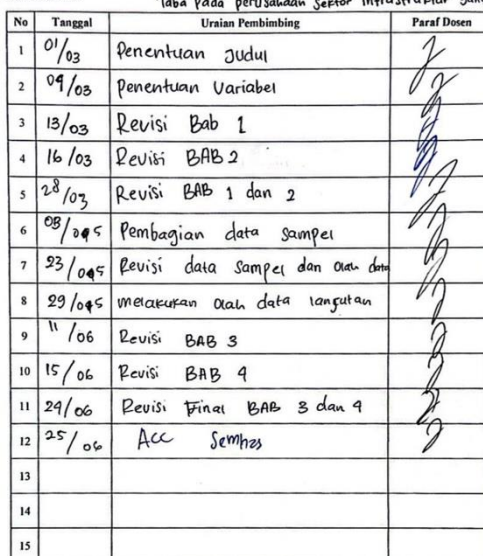 Laba pada perusahaan sektor infrastruktur
No Tanggal Uraian Pembimbing Paraf Dosen
1 01/03 Penentuan Judul
2 09/03 Penentuan Variabel
3 13/03 Revisi Bab 1
4 16/03 Revisi BAB 2
5 28/03 Revisi BAB 1 dan 2
6 Pembagian data sampel
7 Revisi data sampel dan olah data
8 melakukan olah data lanjutan
9 11/06 Revisi BAB 3
10 15/06 Revisi BAB 4
11 24/06 Revisi Final BAB 3 dan 4
12 25/06 Acc Semhas
13
14
15